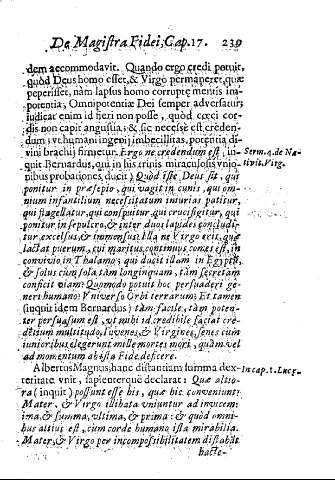 De Magistra Fidei, Cap. 17. 239
dem accommodavit. Quando ergo credi potuit,
quòd Deus homo esset, & Virgo permaneret, quæ
peperisset, nàm lapsus homo corruptę mentis im-
potentia, Omnipotentiæ Dei semper adversatur,
iudicat enim id fieri non posse, quòd cœci cor-
dis non capit angustia; & sic necesse est creden-
dum; vt humani ingenij imbecillitas, potentiâ di-
vinî brachij firmetur. Ergo ne credendum est, in-
quit Bernardus, qui in his trinis miraculosis vnio-
nibus probationes ducit, Quòd iste Deus sit, qui
ponitur in præsepio, qui vagit in cunis, qui om-
nium infantilium necessitatum iniurias patitur,
qui flagellatur, qui conspuitur, qui crucifigitur, qui
ponitur in sepulcro, & inter duos lapides concludi-
tur, excelsus, & immensus? Illa ne Virgo erit, quæ
lactat puerum, cui maritus continuus comes est, in
convivio in Thalamo; qui ducit illam in Egyptũ,
& solus cum sola tàm longinquam, tàm secretam
conficit viam? Quomodo potuit hoc persuaderi ge-
neri humano? Vniverso Orbi terrarum? Et tamen
(inquit idem Bernardus) tàm facile, tàm poten-
ter persuasum est, vt mihi id credibile faciat cre-
dẽtium multitudo, Iuvenes, & Virgines, senes cum
iunioribus elegerunt mille mortes mori, quàm vel
ad momentum ab ista Fide deficere.
Albertus Magnus, hanc distantiam summa dex-
teritate vnit, sapienterque declarat: Quæ altio-
ra (inquit) possunt esse his, quæ hic conveniunt;
Mater, & Virgo illibata vniuntur ad invicem:
ima, & summa, vltima, & prima: & quòd omni-
bus altius est, cum corde humano ista mirabilia.
Mater, & Virgo per incompossibilitatem distabãt
hacte-
Serm. 4. de Na-
tivit. Virg.
In cap. 1. Lucę.